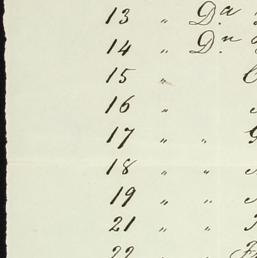 13 " D.ª
14 " D.ⁿ
15 "
16 "
17 " "
18 " "
19 " "
21 " "
22 " "